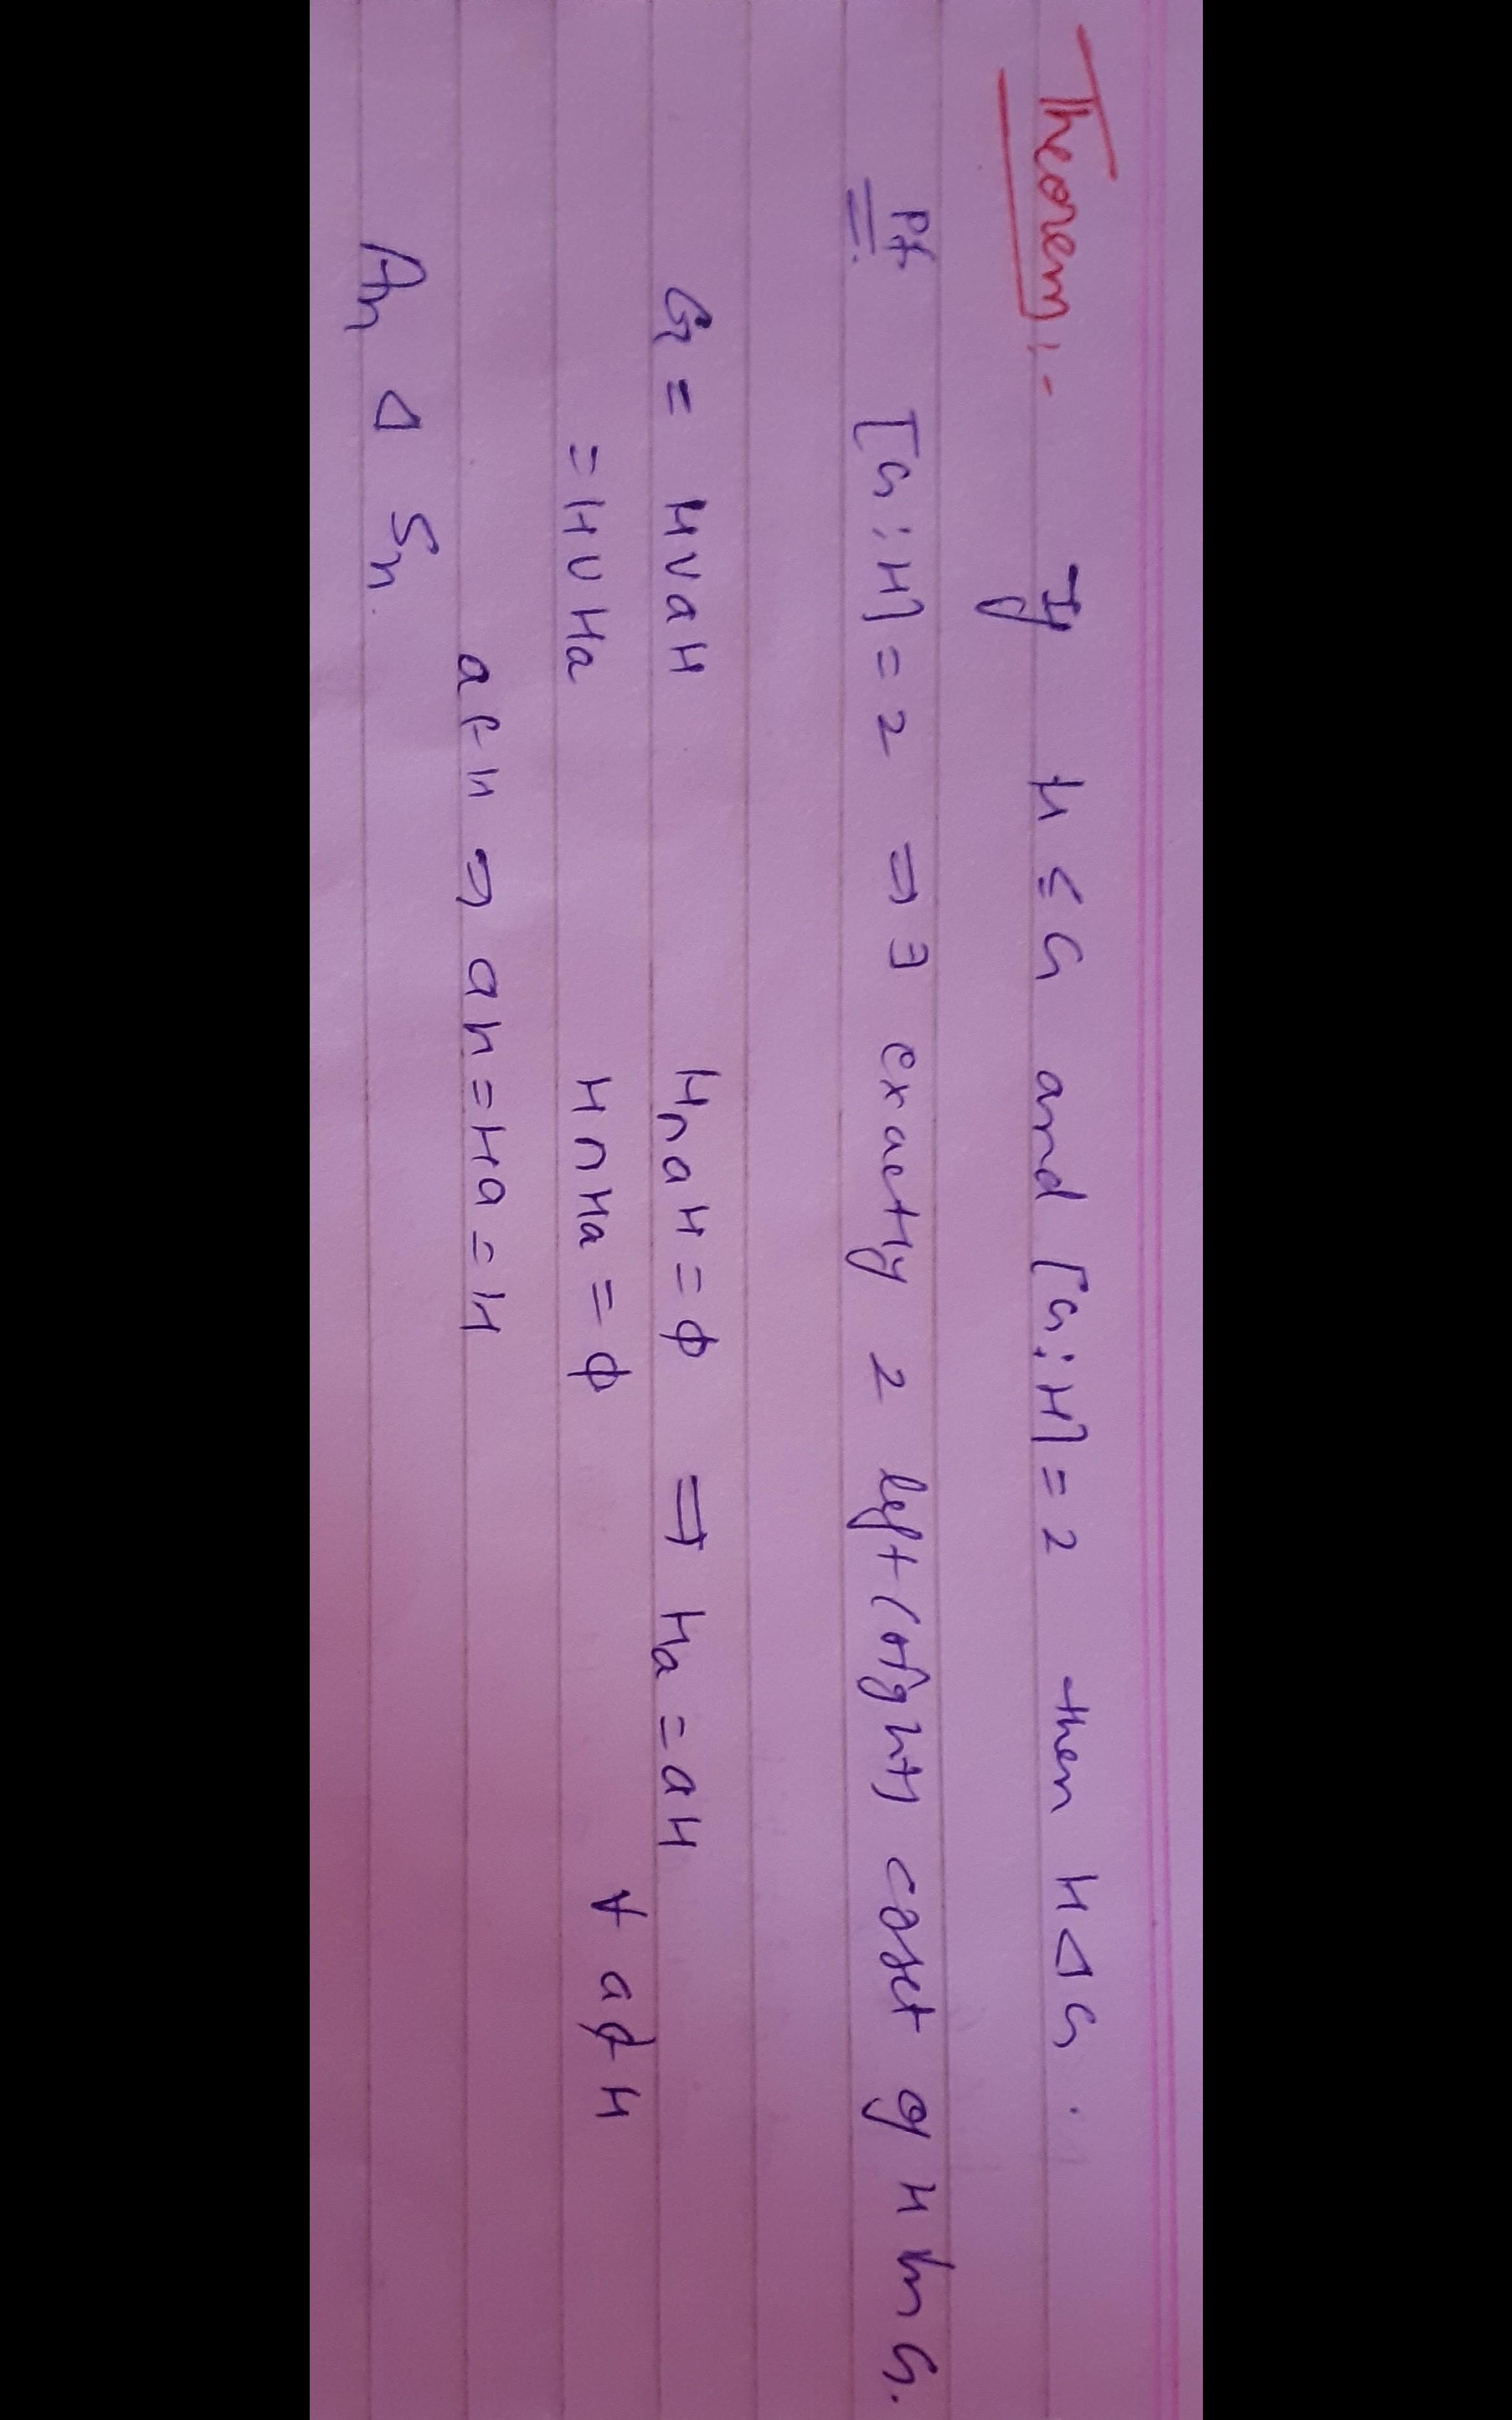 Theorem :- If H ≤ G and [G:H] = 2 then H ⊲ G.
Pf. [G:H] = 2 ⇒ ∃ exactly 2 left (right) coset of H in G.
G = H ∪ aH H ∩ aH = ϕ ⇒ Ha = aH
= H ∪ Ha H ∩ Ha = ϕ ∀ a ∉ H
a ∈ H ⇒ aH = Ha = H
An ⊲ Sn.